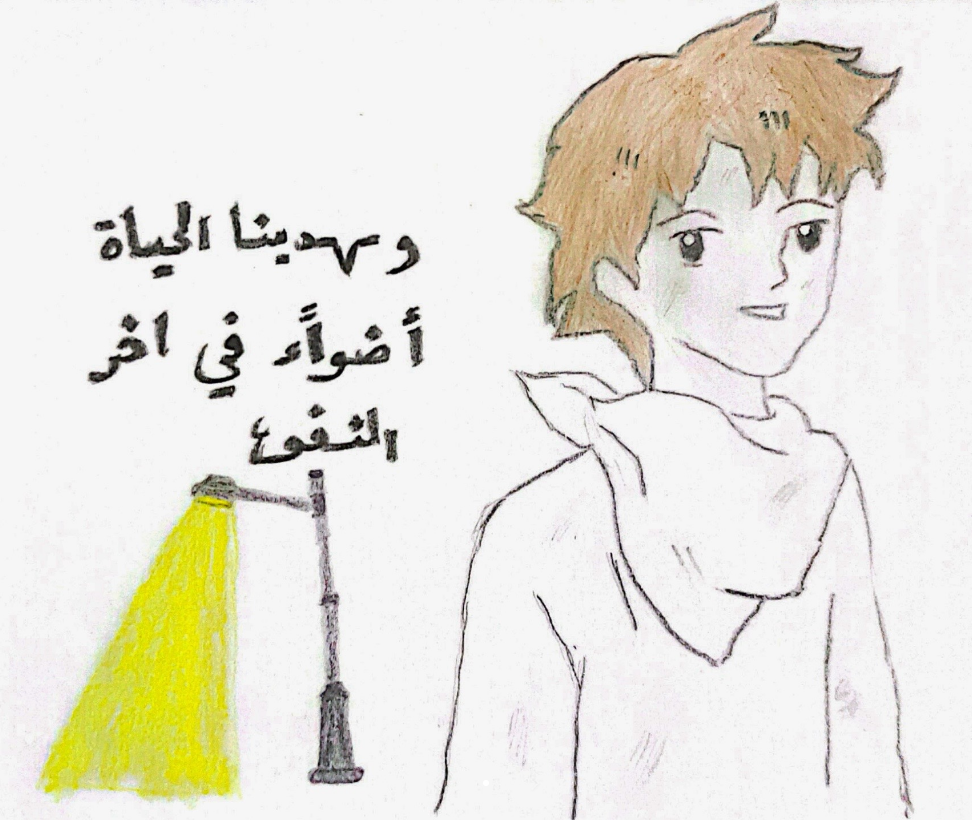 وتهدينا الحياة
أضواءً في اخر
النفوع